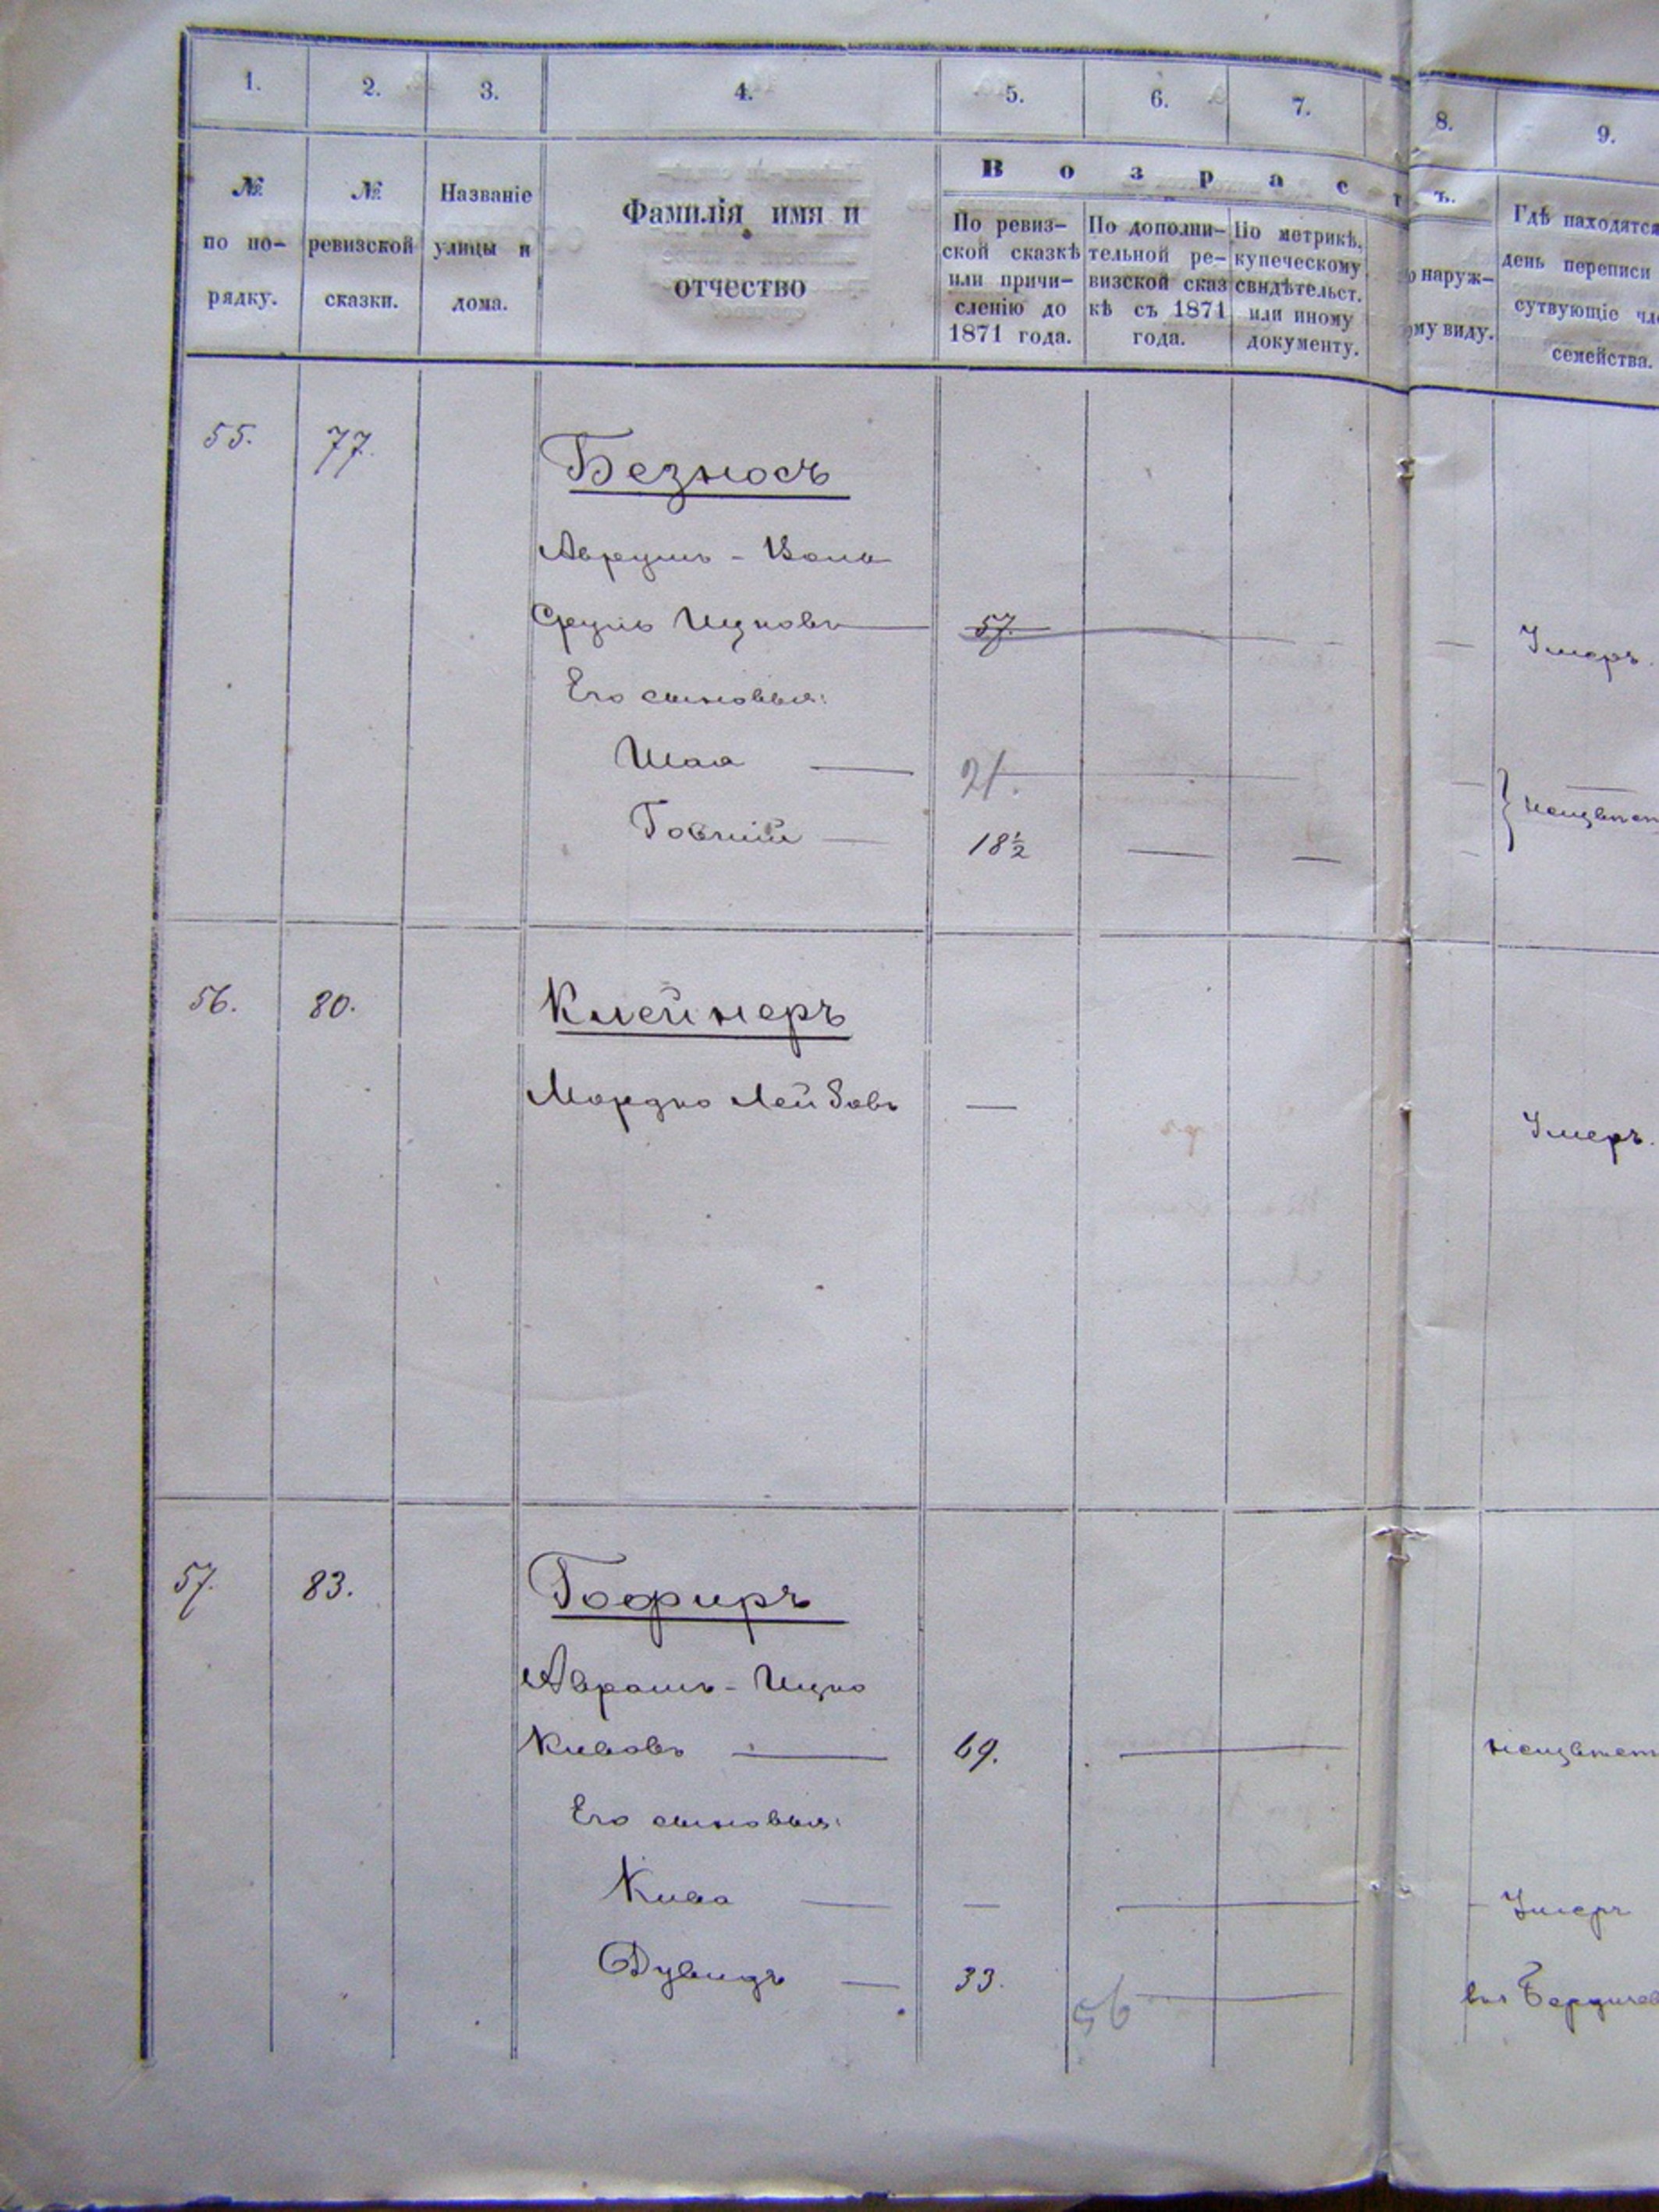 1. 2. 3. 4. 5. 6. 7. 8. 9.
№ по по-рядку.
№ ревизской сказки.
Названіе улицы и дома.
Фамилія имя и отчество
Возрастъ.
По ревиз-
ской сказкѣ
или причи-
сленію до
1871 года.
По дополни-
тельной ре-
визской сказ
кѣ съ 1871
года.
По метрикѣ,
купеческому
свидѣтельст.
или иному
документу.
наруж-
ому виду.
Гдѣ находятся
день переписи
сутвующіе чле
семейства.
55. 77. Безносъ
Аврумъ - Волъ
Сруль Ицковъ 57. Умеръ.
Его сыновья:
Шая 21.
18 1/2
56. 80. Клейнеръ
Мордко Лейбовъ — Умеръ.
57. 83. Гофиръ
Аврамъ - Ицко
Кивовъ 69.
Его сыновья:
Кива — Умеръ
Дувидъ 33.
56